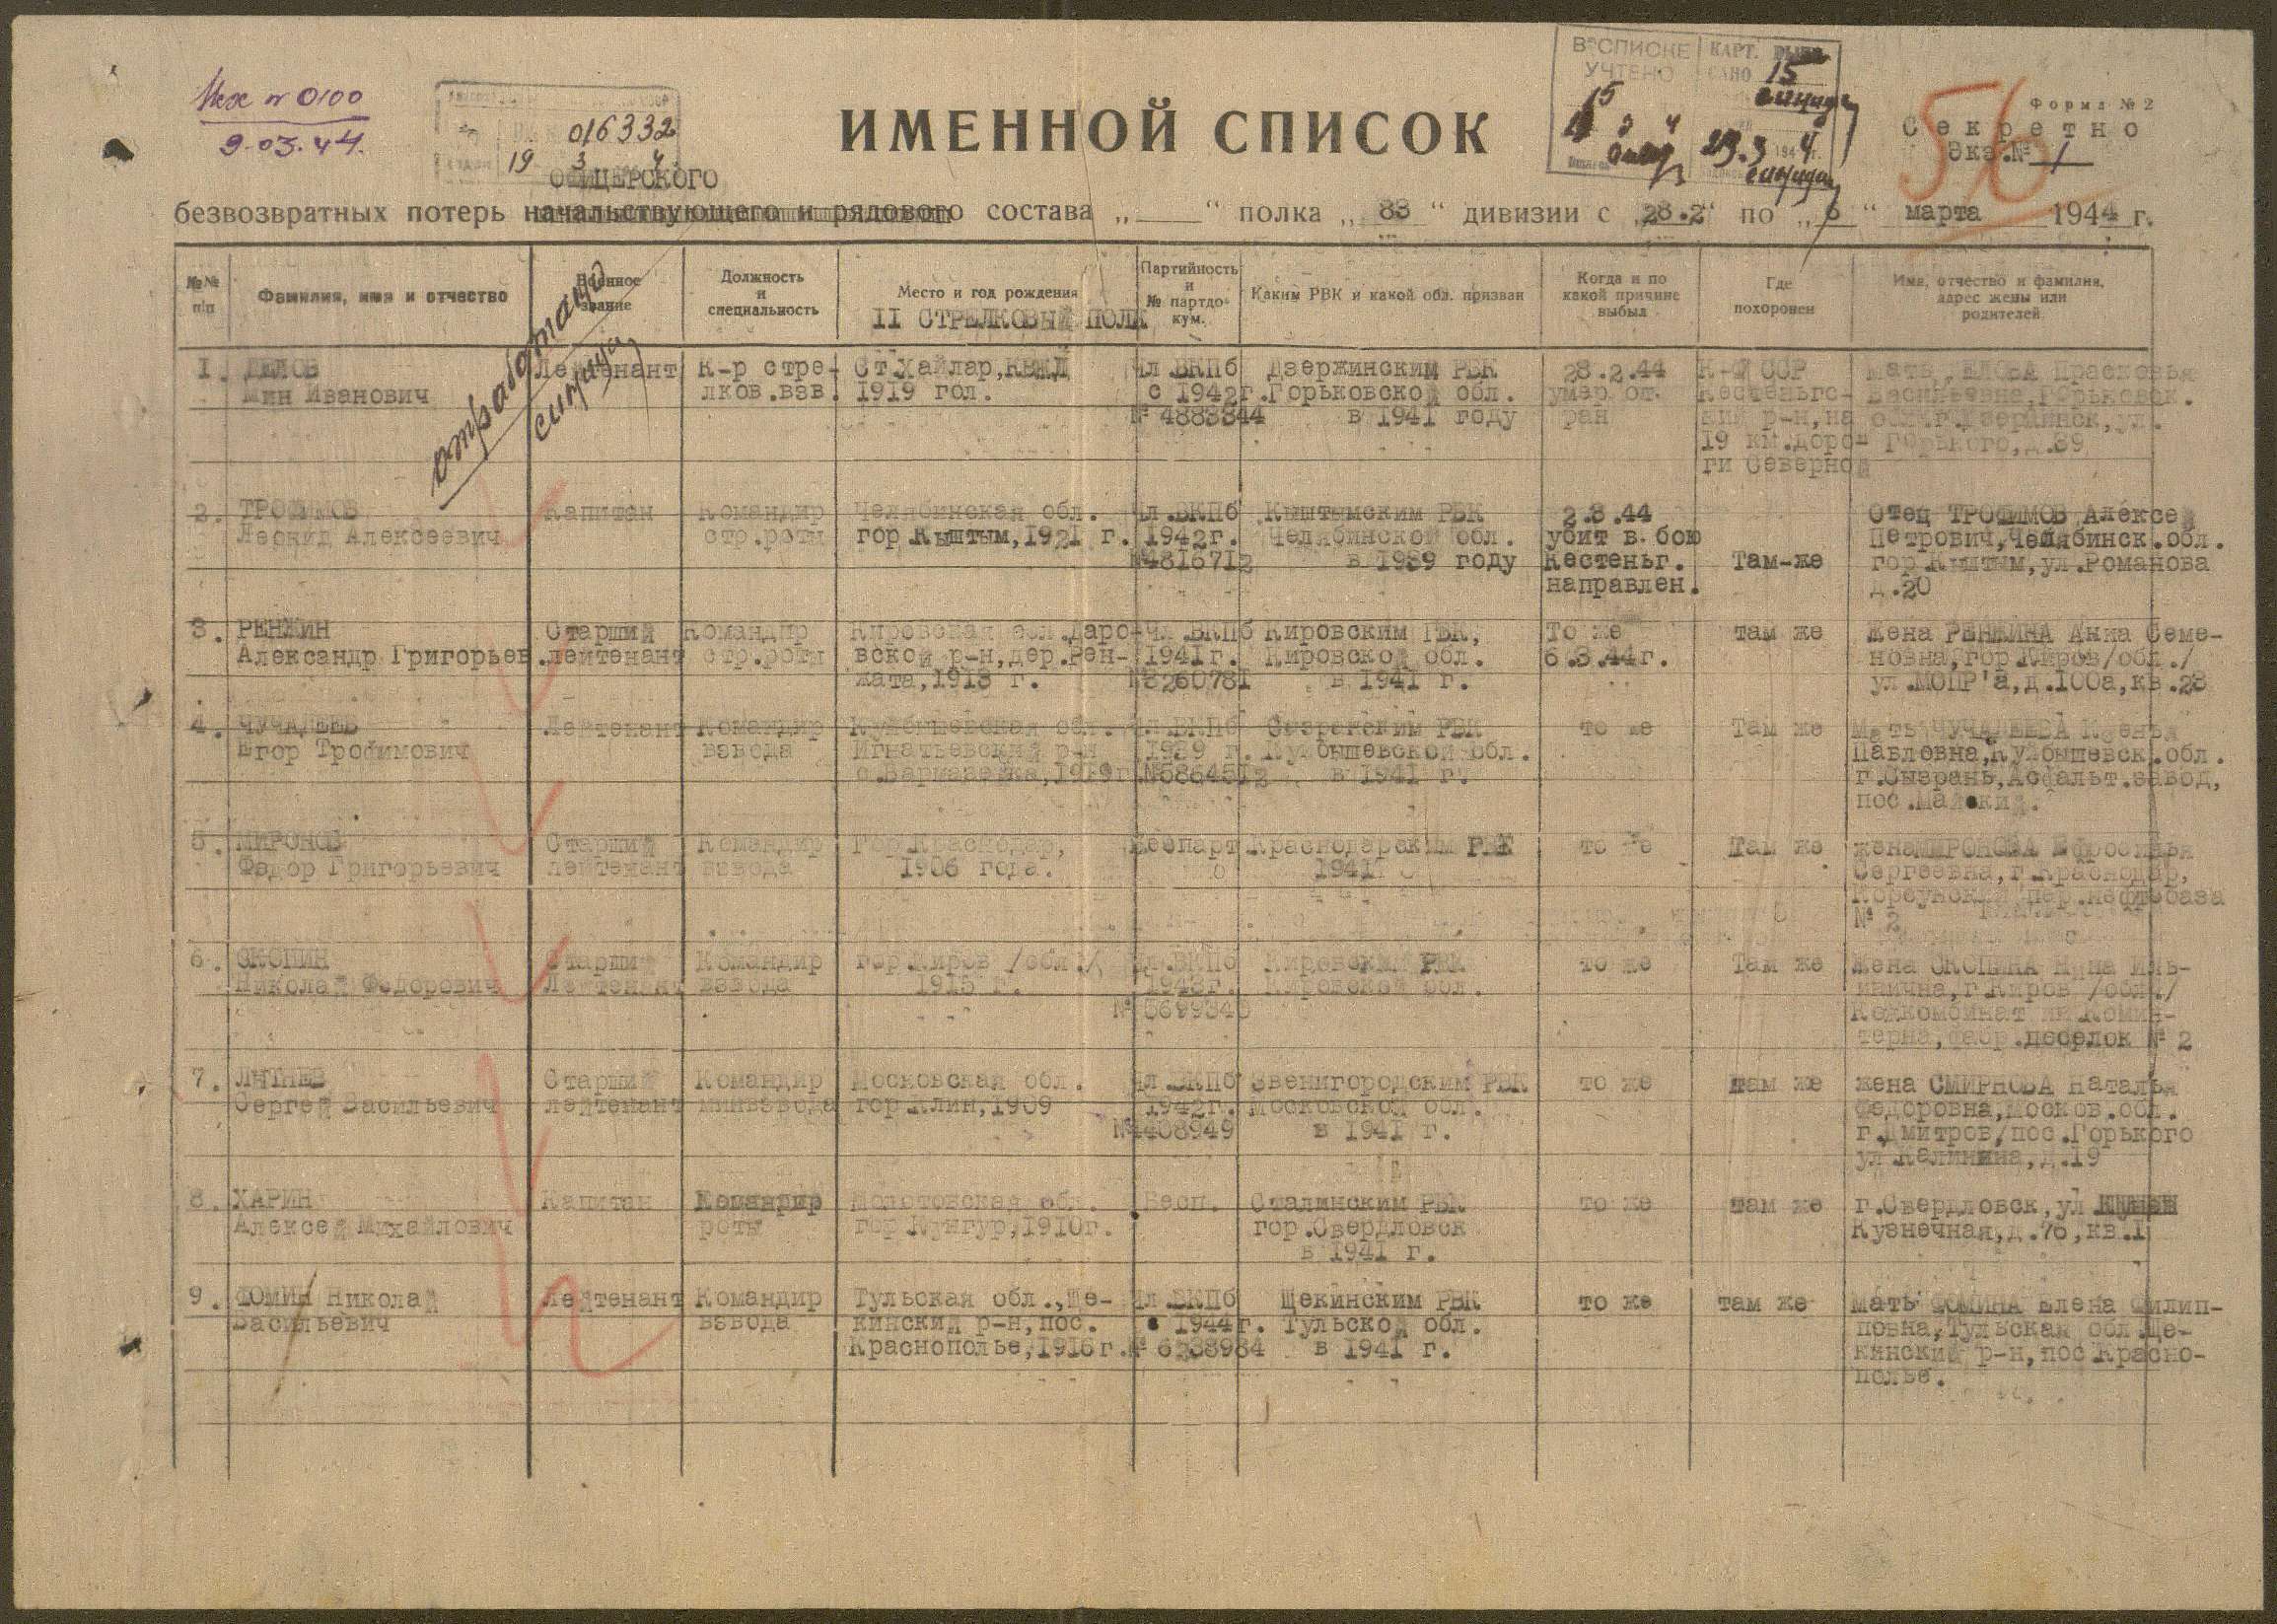 Исх № 0100
9.03.44.
016332
19 3 4
В СПИСКЕ УЧТЕНО
КАРТ.
15
15
29.3 1944 г.
56
Форма № 2
Секретно
Экз.№ 1
ИМЕННОЙ СПИСОК
ОФИЦЕРСКОГО
безвозвратных потерь начальствующего и рядового состава „ “ полка „ 83 “ дивизии с „28.2“ по „6“ марта 1944 г.
№№ п/п
Фамилия, имя и отчество
Военное звание
Должность и специальность
Место и год рождения
Партийность и № партдокум.
Каким РВК и какой обл. призван
Когда и по какой причине выбыл
Где похоронен
Имя, отчество и фамилия, адрес жены или родителей
II СТРЕЛКОВЫЙ ПОЛК
отработано
1. Мин Иванович
Лейтенант
К-р стре-
лков.взв.
Ст Хайлар, КВЖД
1919 гол.
Чл ВКПб
с 1942г.
№ 4883344
Дзержинским РВК
Горьковской обл.
в 1941 году
28.2.44
умер от
ран
К-Ф ССР
Кестеньгс-
кий р-н, на
19 км.доро-
ги Северной
Мать, Прасковья
Васильевна, Горьковск.
обл. г. Дзержинск, ул.
Горького, д.89
2. ТРОФИМОВ
Леонид Алексеевич
Капитан
Командир
стр.роты
Челябинская обл.
гор.Кыштым, 1921 г.
Чл.ВКПб
1942г.
№4816712
Кыштымским РВК
Челябинской обл.
в 1939 году
2.3.44
убит в бою
Кестеньг.
направлен.
Там-же
Отец ТРОФИМОВ Алексей
Петрович, Челябинск.обл.
гор.Кыштым, ул.Романова
д.20
3. РЕНЖИН
Александр Григорьев.
Старший
лейтенант
Командир
стр.роты
Кировская обл.Даро-
вской р-н, дер.Рен-
жата, 1918 г.
Чл ВКПб
1941г.
№3260781
Кировским РВК,
Кировской обл.
в 1941 г.
То же
6.3.44г.
там же
Жена РЕНЖИНА Анна Семе-
новна, гор Киров/обл./
ул.МОПР'а, д.100а, кв.28
4. ЧУЧАДЕЕВ
Егор Трофимович
Лейтенант
Командир
взвода
Куйбышевская обл.
Игнатьевский р-н
Чл ВКПб
1939 г.
№5864512
Сызранским РВК
Куйбышевской обл.
в 1941 г.
то же
Там же
Мать ЧУЧАДЕЕВА
Павловна, Куйбышевск.обл.
г.Сызрань, Асфальт.завод,
пос.
5. МИРОНОВ
Федор Григорьевич
Старший
лейтенант
Командир
взвода
Гор Краснодар,
1906 года.
Беспарт
Краснодарским РВК
1941
то же
Там же
жена МИРОНОВА Ефросинья
Сергеевна, г.Краснодар,
Корсунский пер.нефтебаза
№ 2
6. СКОПИН
Николай Федорович
Старший
Лейтенант
Командир
взвода
гор.Киров /обл./
1915 г.
Чл.ВКПб
1943г.
№ 5699340
Кировским РВК
Кировской обл.
то же
Там же
Жена СКОПИНА Нина Иль-
инична, г.Киров /обл./
Кожкомбинат им Комин-
терна, фабр.поселок № 2
7. ЛЯТЛЕВ
Сергей Васильевич
Старший
лейтенант
Командир
минвзвода
Московская обл.
гор Клин, 1909
Чл ВКПб
1942г.
№4408949
Звенигородским РВК
Московской обл.
в 1941 г.
то же
там же
жена СМИРНОВА Наталья
Федоровна, Москов.обл.
г.Дмитров/пос.Горького
ул Калинина, д.19
8. ХАРИН
Алексей Михайлович
Капитан
Командир
роты
Молотовская обл.
гор Кунгур, 1910г.
Бесп.
Сталинским РВК
гор.Свердловск
в 1941 г.
то же
там же
г.Свердловск, ул
Кузнечная, д.76, кв.1
9. ФОМИН Николай
Васильевич
Лейтенант
Командир
взвода
Тульская обл., Ще-
кинский р-н, пос.
Краснополье, 1916г.
Чл ВКПб
1944г.
№ 6538984
Щекинским РВК
Тульской обл.
в 1941 г.
то же
там же
Мать ФОМИНА Елена Филип-
повна, Тульская обл Ще-
кинский р-н, пос Красно-
полье.